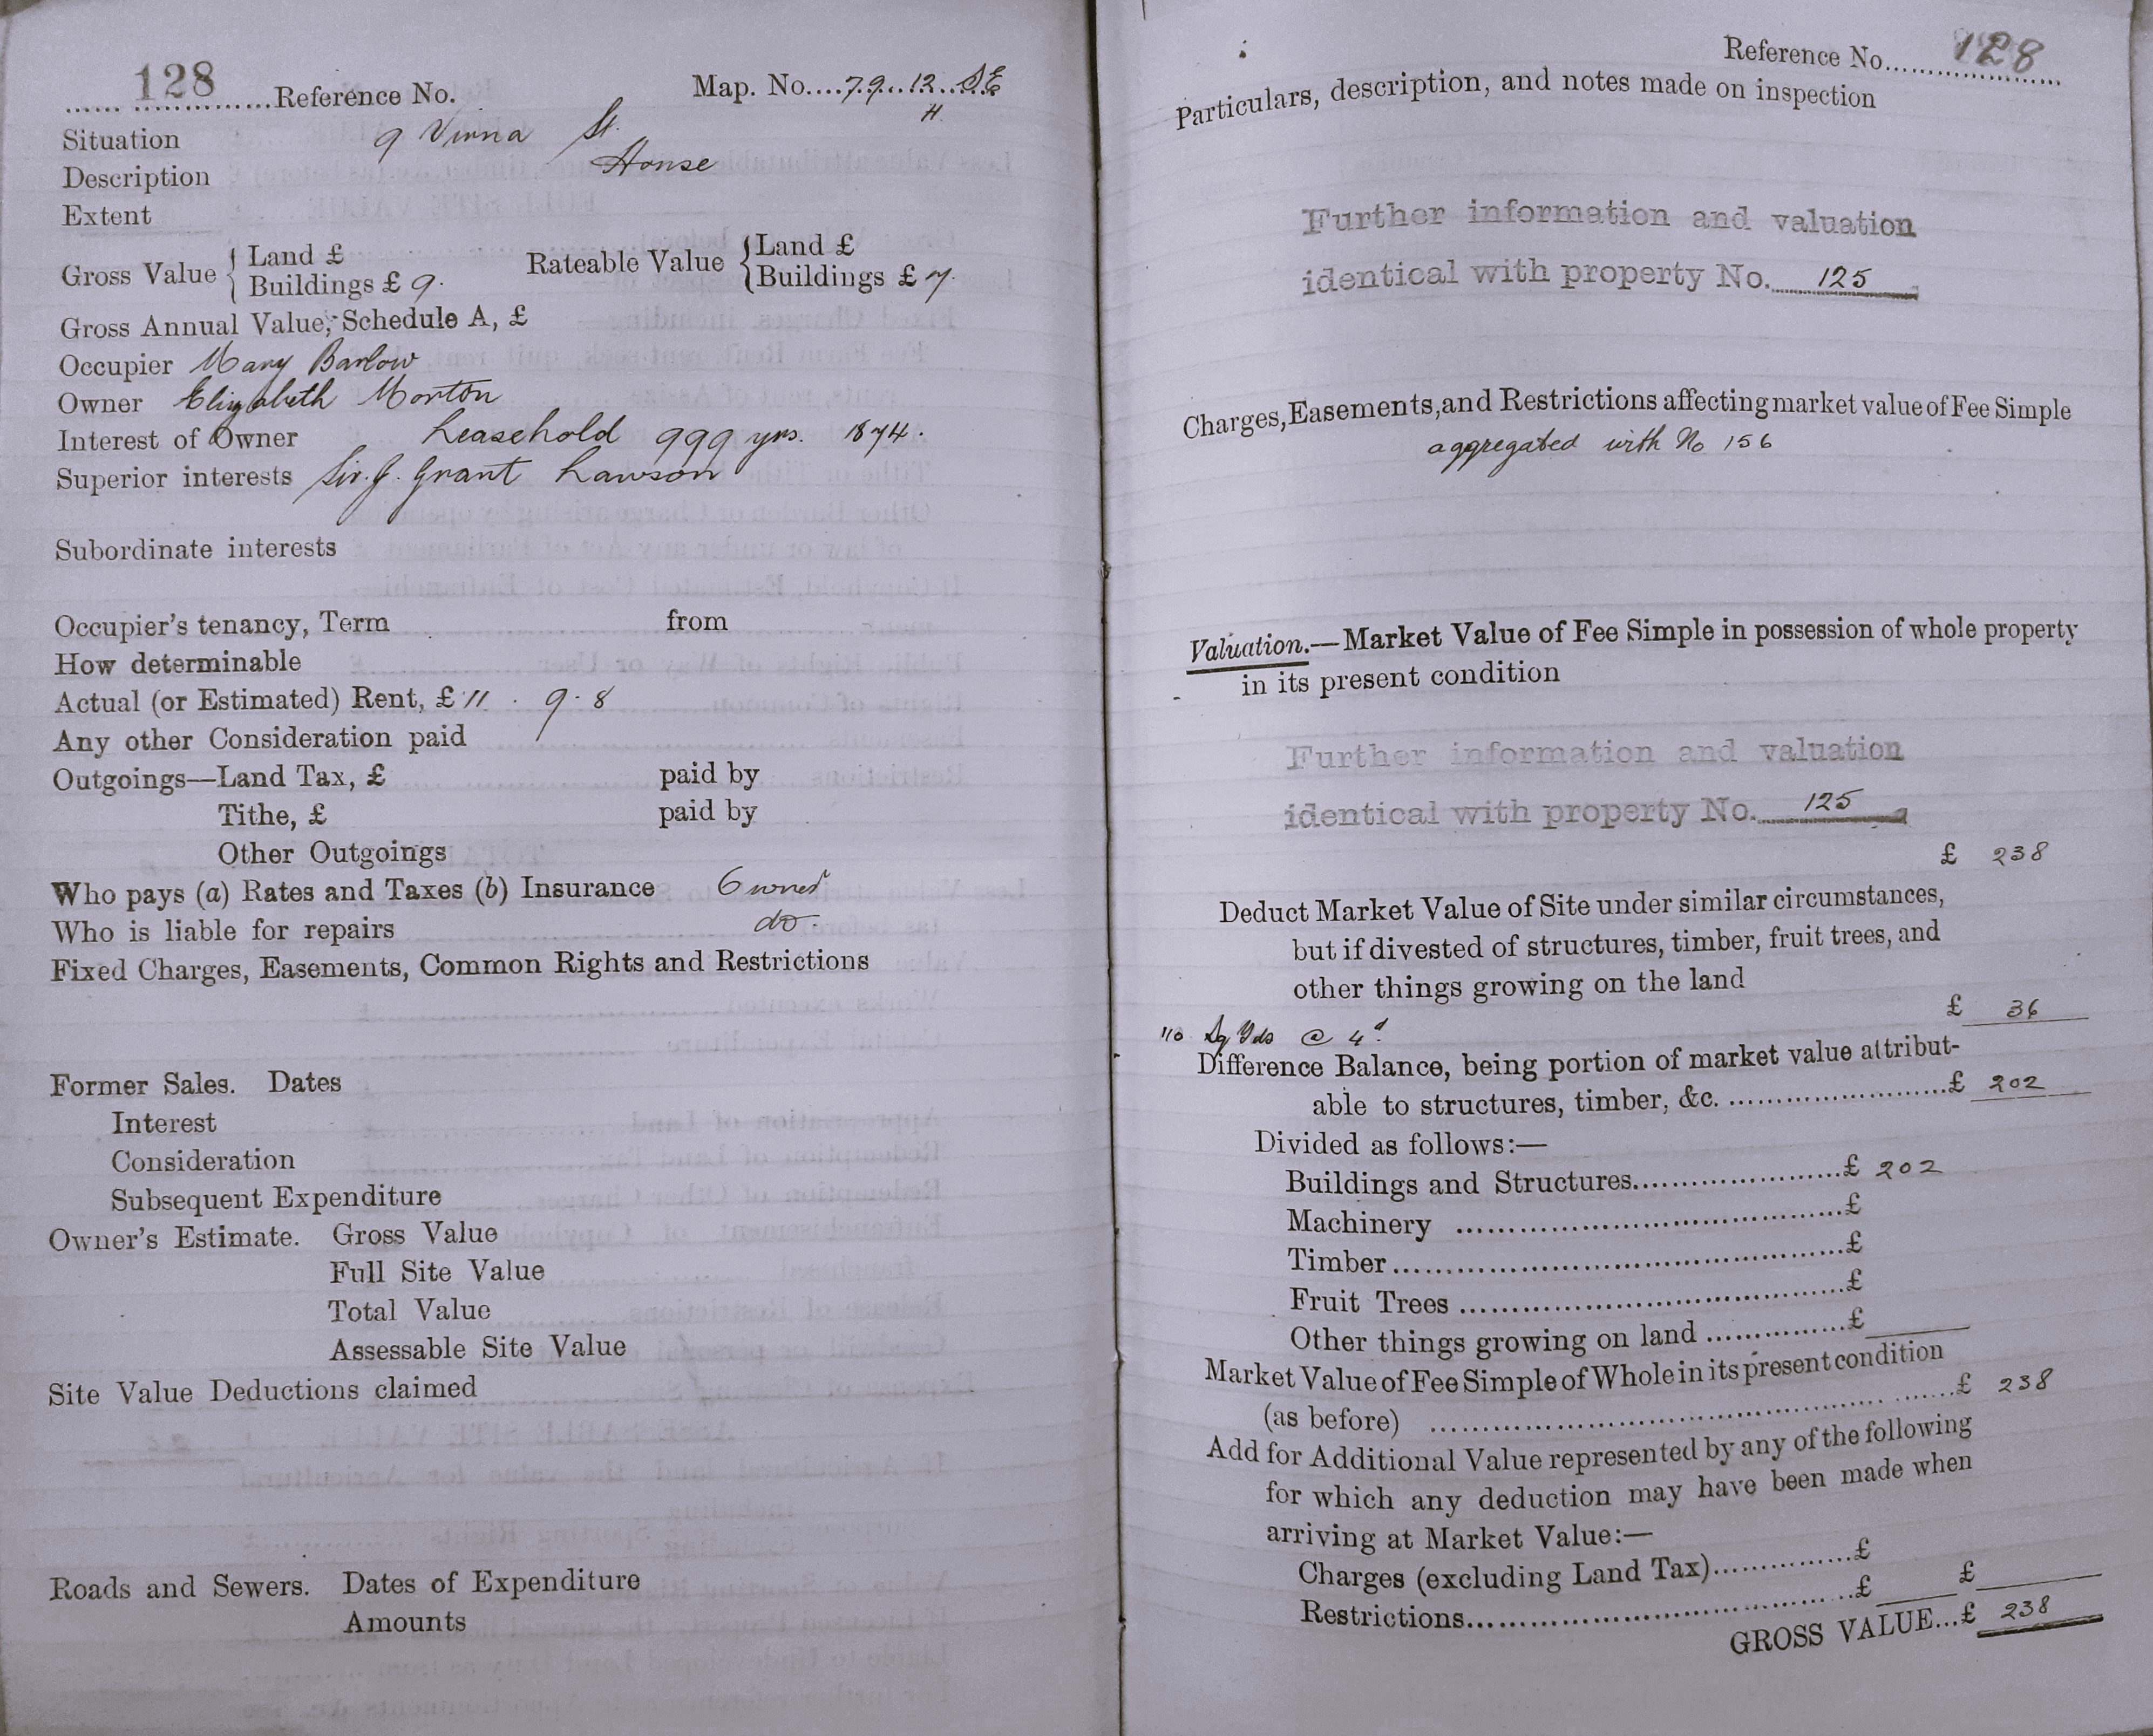 128 Reference No. Map. No. 79 12 SE
H
Situation 9 Vienna St.
Description House
Extent
Gross Value { Land £ Rateable Value { Land £
Buildings £ 9. Buildings £ 7.
Gross Annual Value, Schedule A, £
Occupier Mary Barlow
Owner Elizabeth Morton
Interest of Owner Leasehold 999 yrs. 1874.
Superior interests Sir. J. Grant Lawson
Subordinate interests
Occupier's tenancy, Term from
How determinable
Actual (or Estimated) Rent, £ 11 . 9 . 8
Any other Consideration paid
Outgoings—Land Tax, £ paid by
Tithe, £ paid by
Other Outgoings
Who pays (a) Rates and Taxes (b) Insurance Owner
Who is liable for repairs do.
Fixed Charges, Easements, Common Rights and Restrictions
Former Sales. Dates
Interest
Consideration
Subsequent Expenditure
Owner's Estimate. Gross Value
Full Site Value
Total Value
Assessable Site Value
Site Value Deductions claimed
Roads and Sewers. Dates of Expenditure
Amounts
Reference No. 128
Particulars, description, and notes made on inspection
Further information and valuation
identical with property No. 125
Charges, Easements, and Restrictions affecting market value of Fee Simple
aggregated with No 156
Valuation.—Market Value of Fee Simple in possession of whole property
in its present condition
Further information and valuation
identical with property No. 125
£ 238
Deduct Market Value of Site under similar circumstances,
but if divested of structures, timber, fruit trees, and
other things growing on the land
£ 36
110 Sq Yds @ 4d.
Difference Balance, being portion of market value attribut-
able to structures, timber, &c. £ 202
Divided as follows:—
Buildings and Structures £ 202
Machinery £
Timber £
Fruit Trees £
Other things growing on land £
Market Value of Fee Simple of Whole in its present condition
(as before) £ 238
Add for Additional Value represented by any of the following
for which any deduction may have been made when
arriving at Market Value:—
Charges (excluding Land Tax) £
Restrictions £ £
GROSS VALUE...£ 238